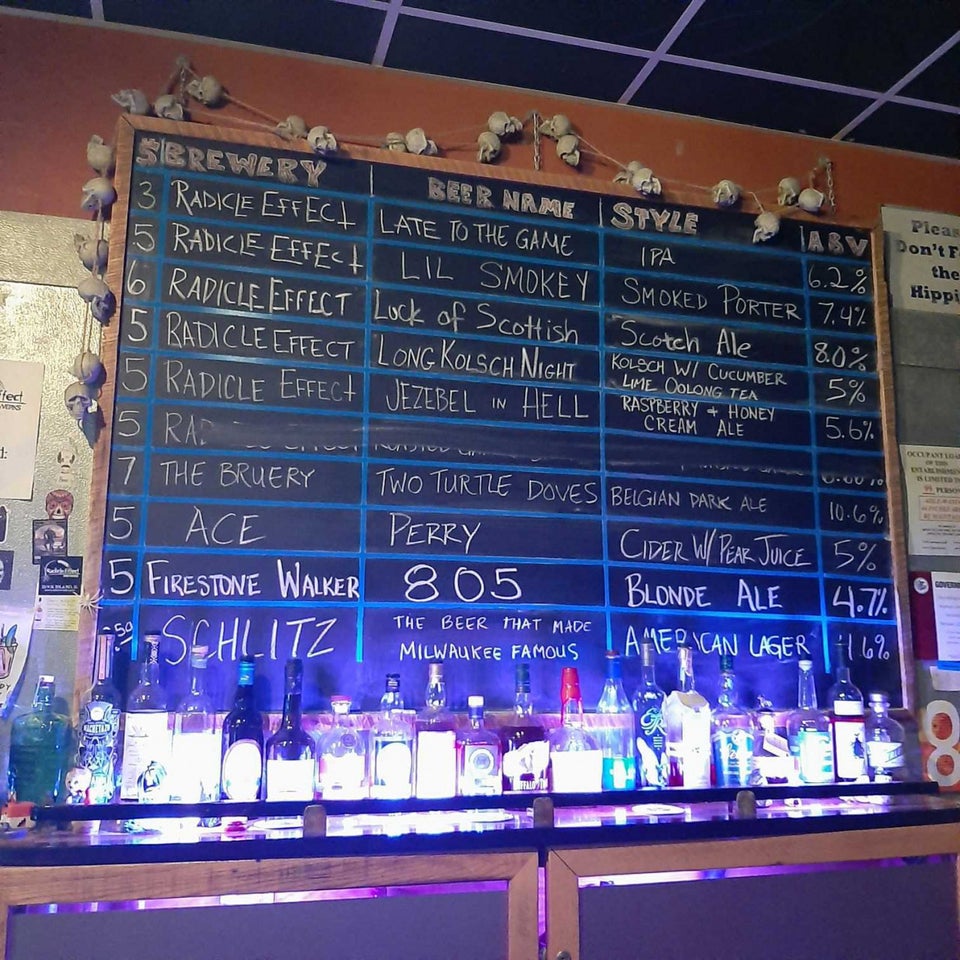 $ BREWERY BEER NAME STYLE ABV
3 RADICLE EFFECT LATE TO THE GAME IPA 6.2%
5 RADICLE EFFECT LIL SMOKEY SMOKED PORTER 7.4%
6 RADICLE EFFECT Luck of Scottish Scotch Ale 8.0%
5 RADICLE EFFECT LONG KOLSCH NIGHT KOLSCH W/ CUCUMBER
LIME OOLONG TEA 5%
5 RADICLE EFFECT JEZEBEL IN HELL RASPBERRY + HONEY
CREAM ALE 5.6%
5
7 THE BRUERY TWO TURTLE DOVES BELGIAN DARK ALE 10.6%
5 ACE PERRY CIDER W/ PEAR JUICE 5%
5 FIRESTONE WALKER 805 BLONDE ALE 4.7%
SCHLITZ THE BEER THAT MADE
MILWAUKEE FAMOUS AMERICAN LAGER
Pleas
Don't F
the
Hippi
OCCUPANT LOA
OF THIS
ESTABLISHMEN
IS LIMITED T
PERSON
GOVERN
8